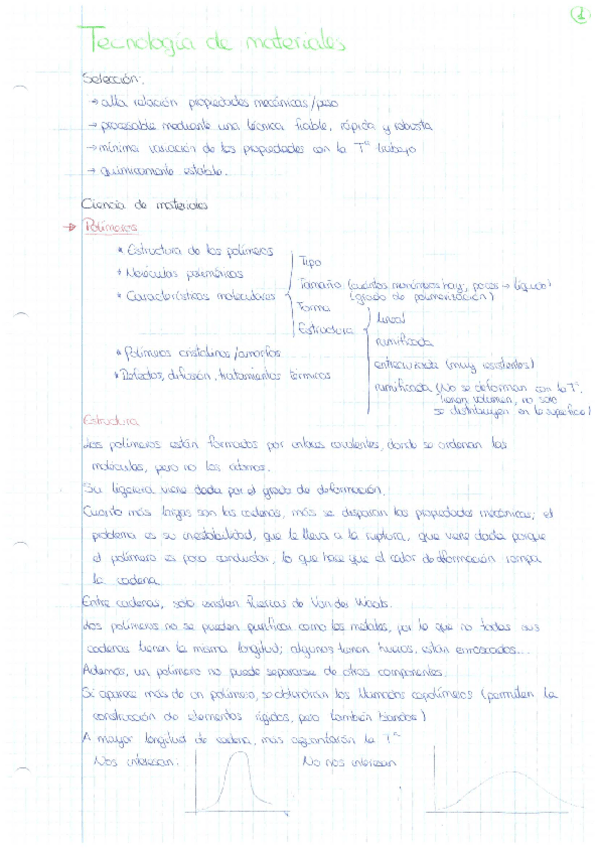 1
Tecnología de materiales
Selección:
→ alta relación propiedades mecánicas/peso
→ procesable mediante una técnica fiable, rápida y robusta
→ mínima variación de las propiedades con la Tª trabajo
→ químicamente estable.
Ciencia de materiales
→ Polímeros
* Estructura de los polímeros
* Moléculas poliméricas
* Características moleculares
Tipo
Tamaño (cuántos monómeros hay; pocos → líquido)
(grado de polimerización)
Forma
Estructura
lineal
ramificada
entrecruzada (muy resistentes)
ramificada (No se deforman con la Tª,
tienen volumen, no solo
se distribuyen en la superficie)
* Polímeros cristalinos/amorfos
* Defectos, difusión, tratamientos térmicos
Estructura
Los polímeros están formados por enlaces covalentes, donde se ordenan las
moléculas, pero no los átomos.
Su ligereza viene dada por el grado de deformación.
Cuanto más largas son las cadenas, más se disparan las propiedades mecánicas; el
problema es su inestabilidad, que le lleva a la ruptura, que viene dada porque
el polímero es poco conductor, lo que hace que el calor de deformación rompa
la cadena.
Entre cadenas, solo existen fuerzas de Van der Waals.
Los polímeros no se pueden purificar como los metales, por lo que no todas sus
cadenas tienen la misma longitud; algunos tienen huecos, están enroscados...
Además, un polímero no puede separarse de otros componentes.
Si aparece más de un polímero, se obtendrán los llamados copolímeros (permiten la
construcción de elementos rígidos, pero también blandos)
A mayor longitud de cadena, más aguantarán la Tª
Nos interesan:
No nos interesan